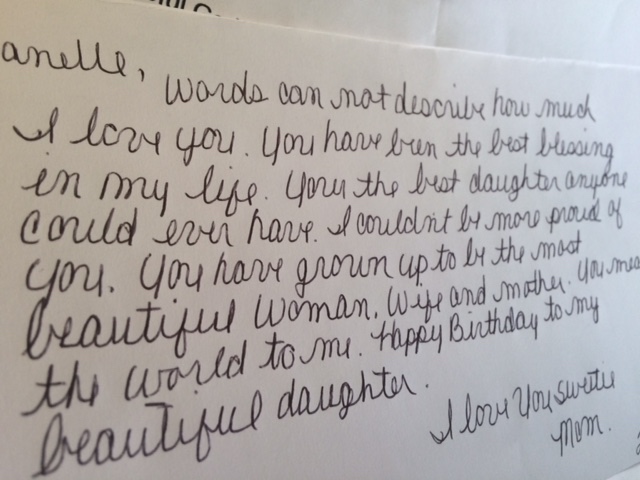 anelle,
Words can not describe how much
I love you. You have been the best blessing
in my life. Your the best daughter anyone
could ever have. I couldn't be more proud of
you. You have grown up to be the most
beautiful woman, wife and mother. You mea
the world to me. Happy Birthday to my
beautiful daughter.
I love You sweetie
Mom.